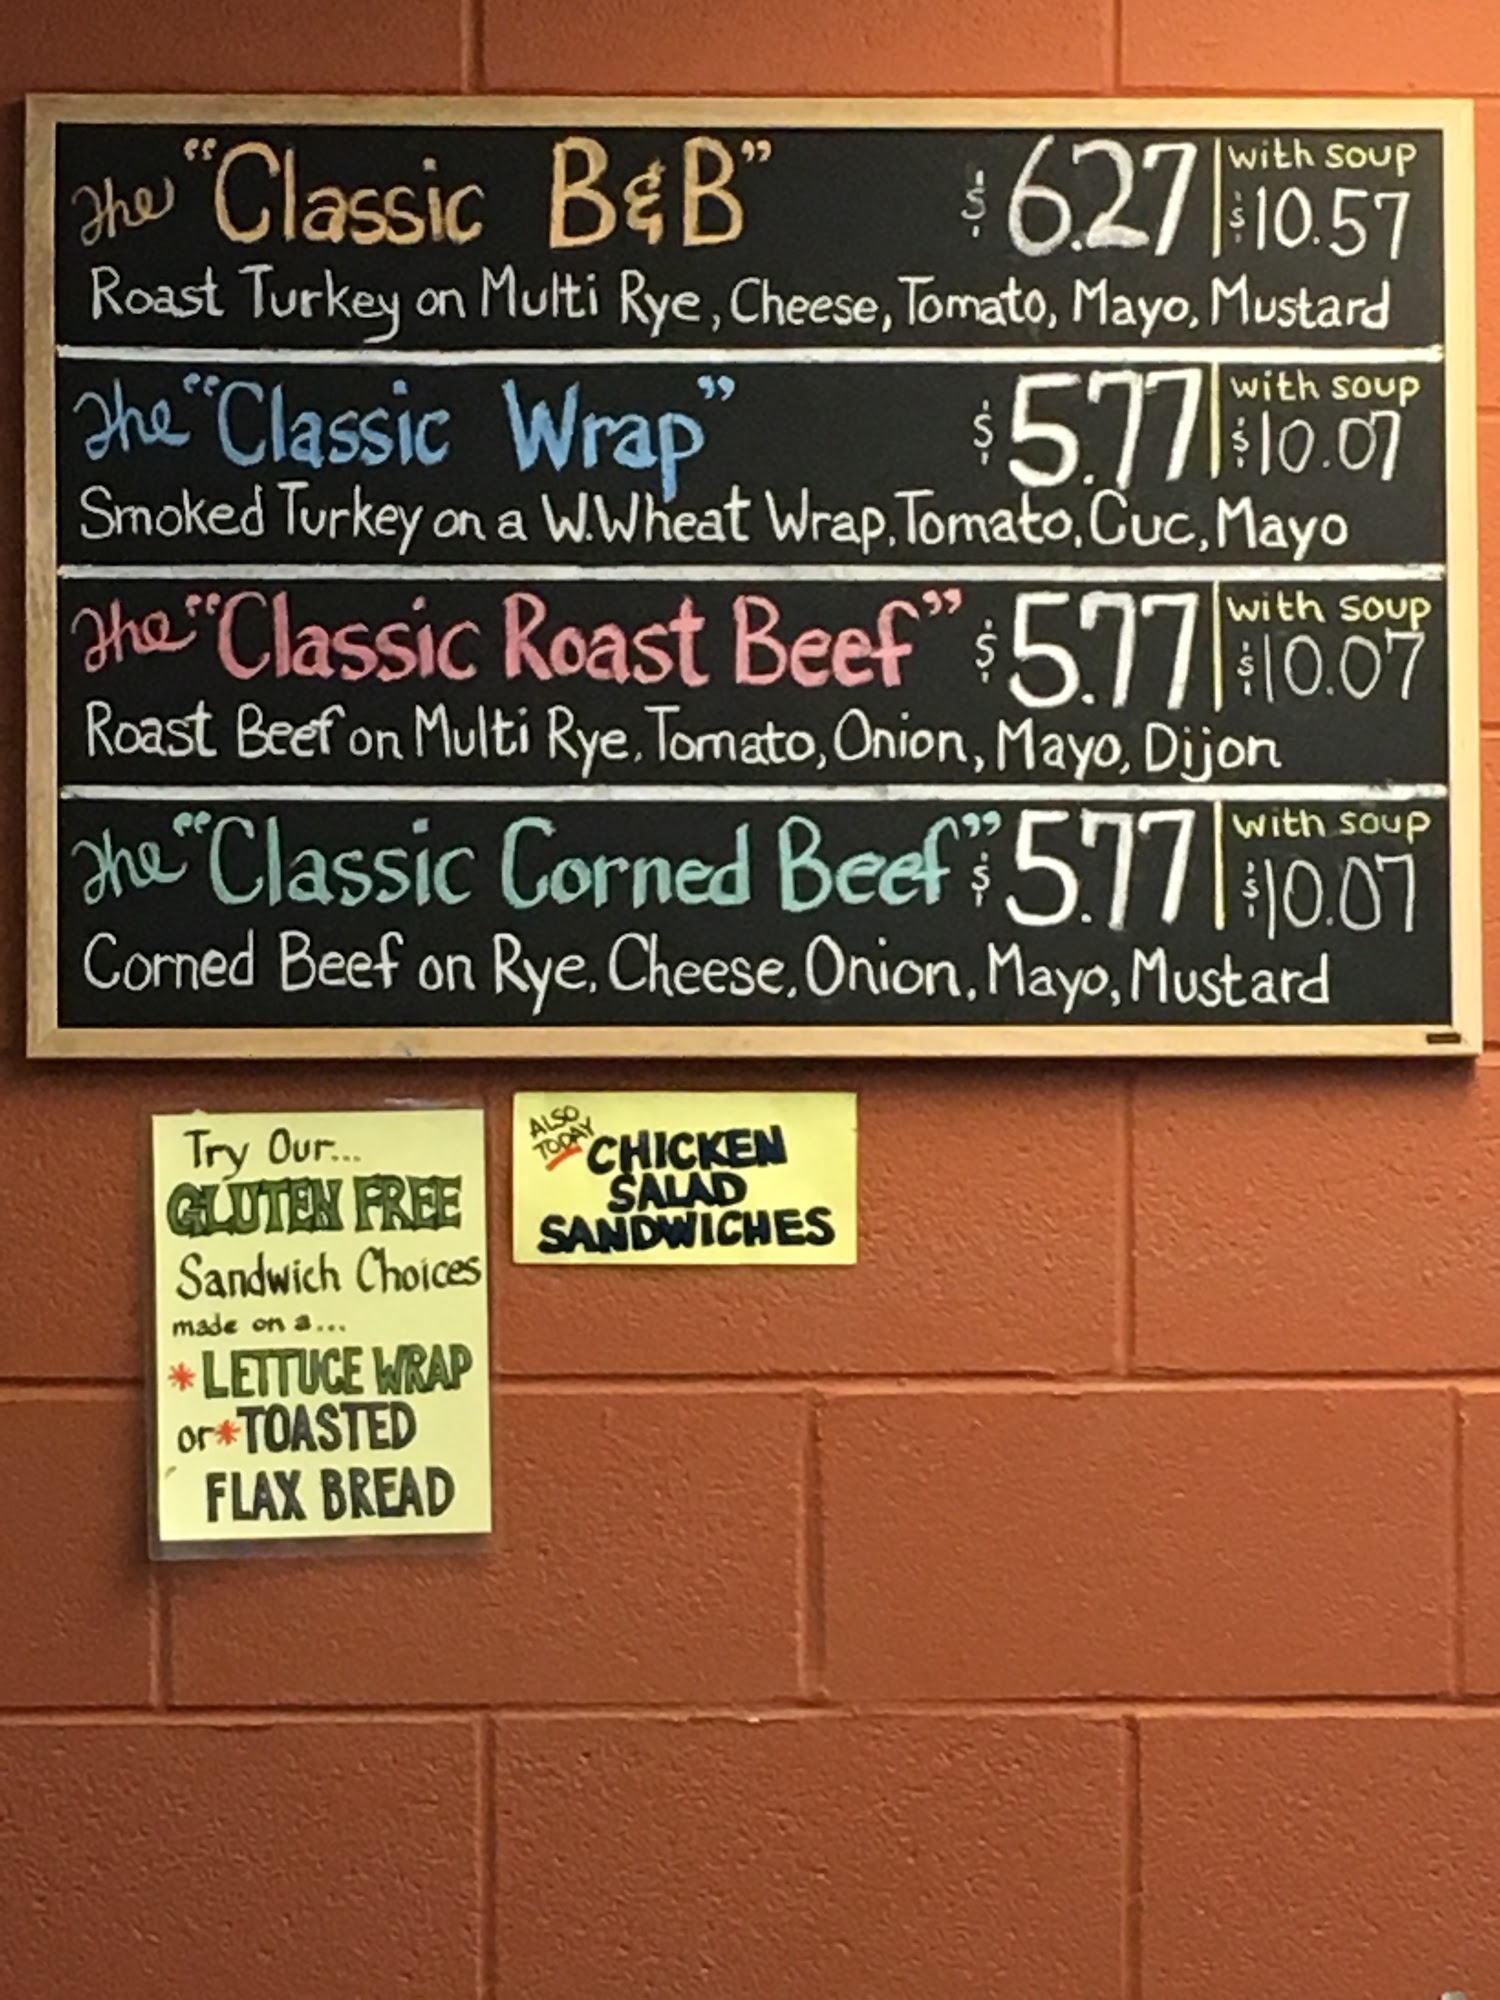 The "Classic B&B" $6.27 with soup $10.57
Roast Turkey on Multi Rye, Cheese, Tomato, Mayo, Mustard
The "Classic Wrap" $5.77 with soup $10.07
Smoked Turkey on a W.Wheat Wrap, Tomato, Cuc, Mayo
The "Classic Roast Beef" $5.77 with soup $10.07
Roast Beef on Multi Rye, Tomato, Onion, Mayo, Dijon
The "Classic Corned Beef" $5.77 with soup $10.07
Corned Beef on Rye, Cheese, Onion, Mayo, Mustard
Try Our...
GLUTEN FREE
Sandwich Choices
made on a...
* LETTUCE WRAP
or * TOASTED
FLAX BREAD
ALSO
TODAY
CHICKEN
SALAD
SANDWICHES